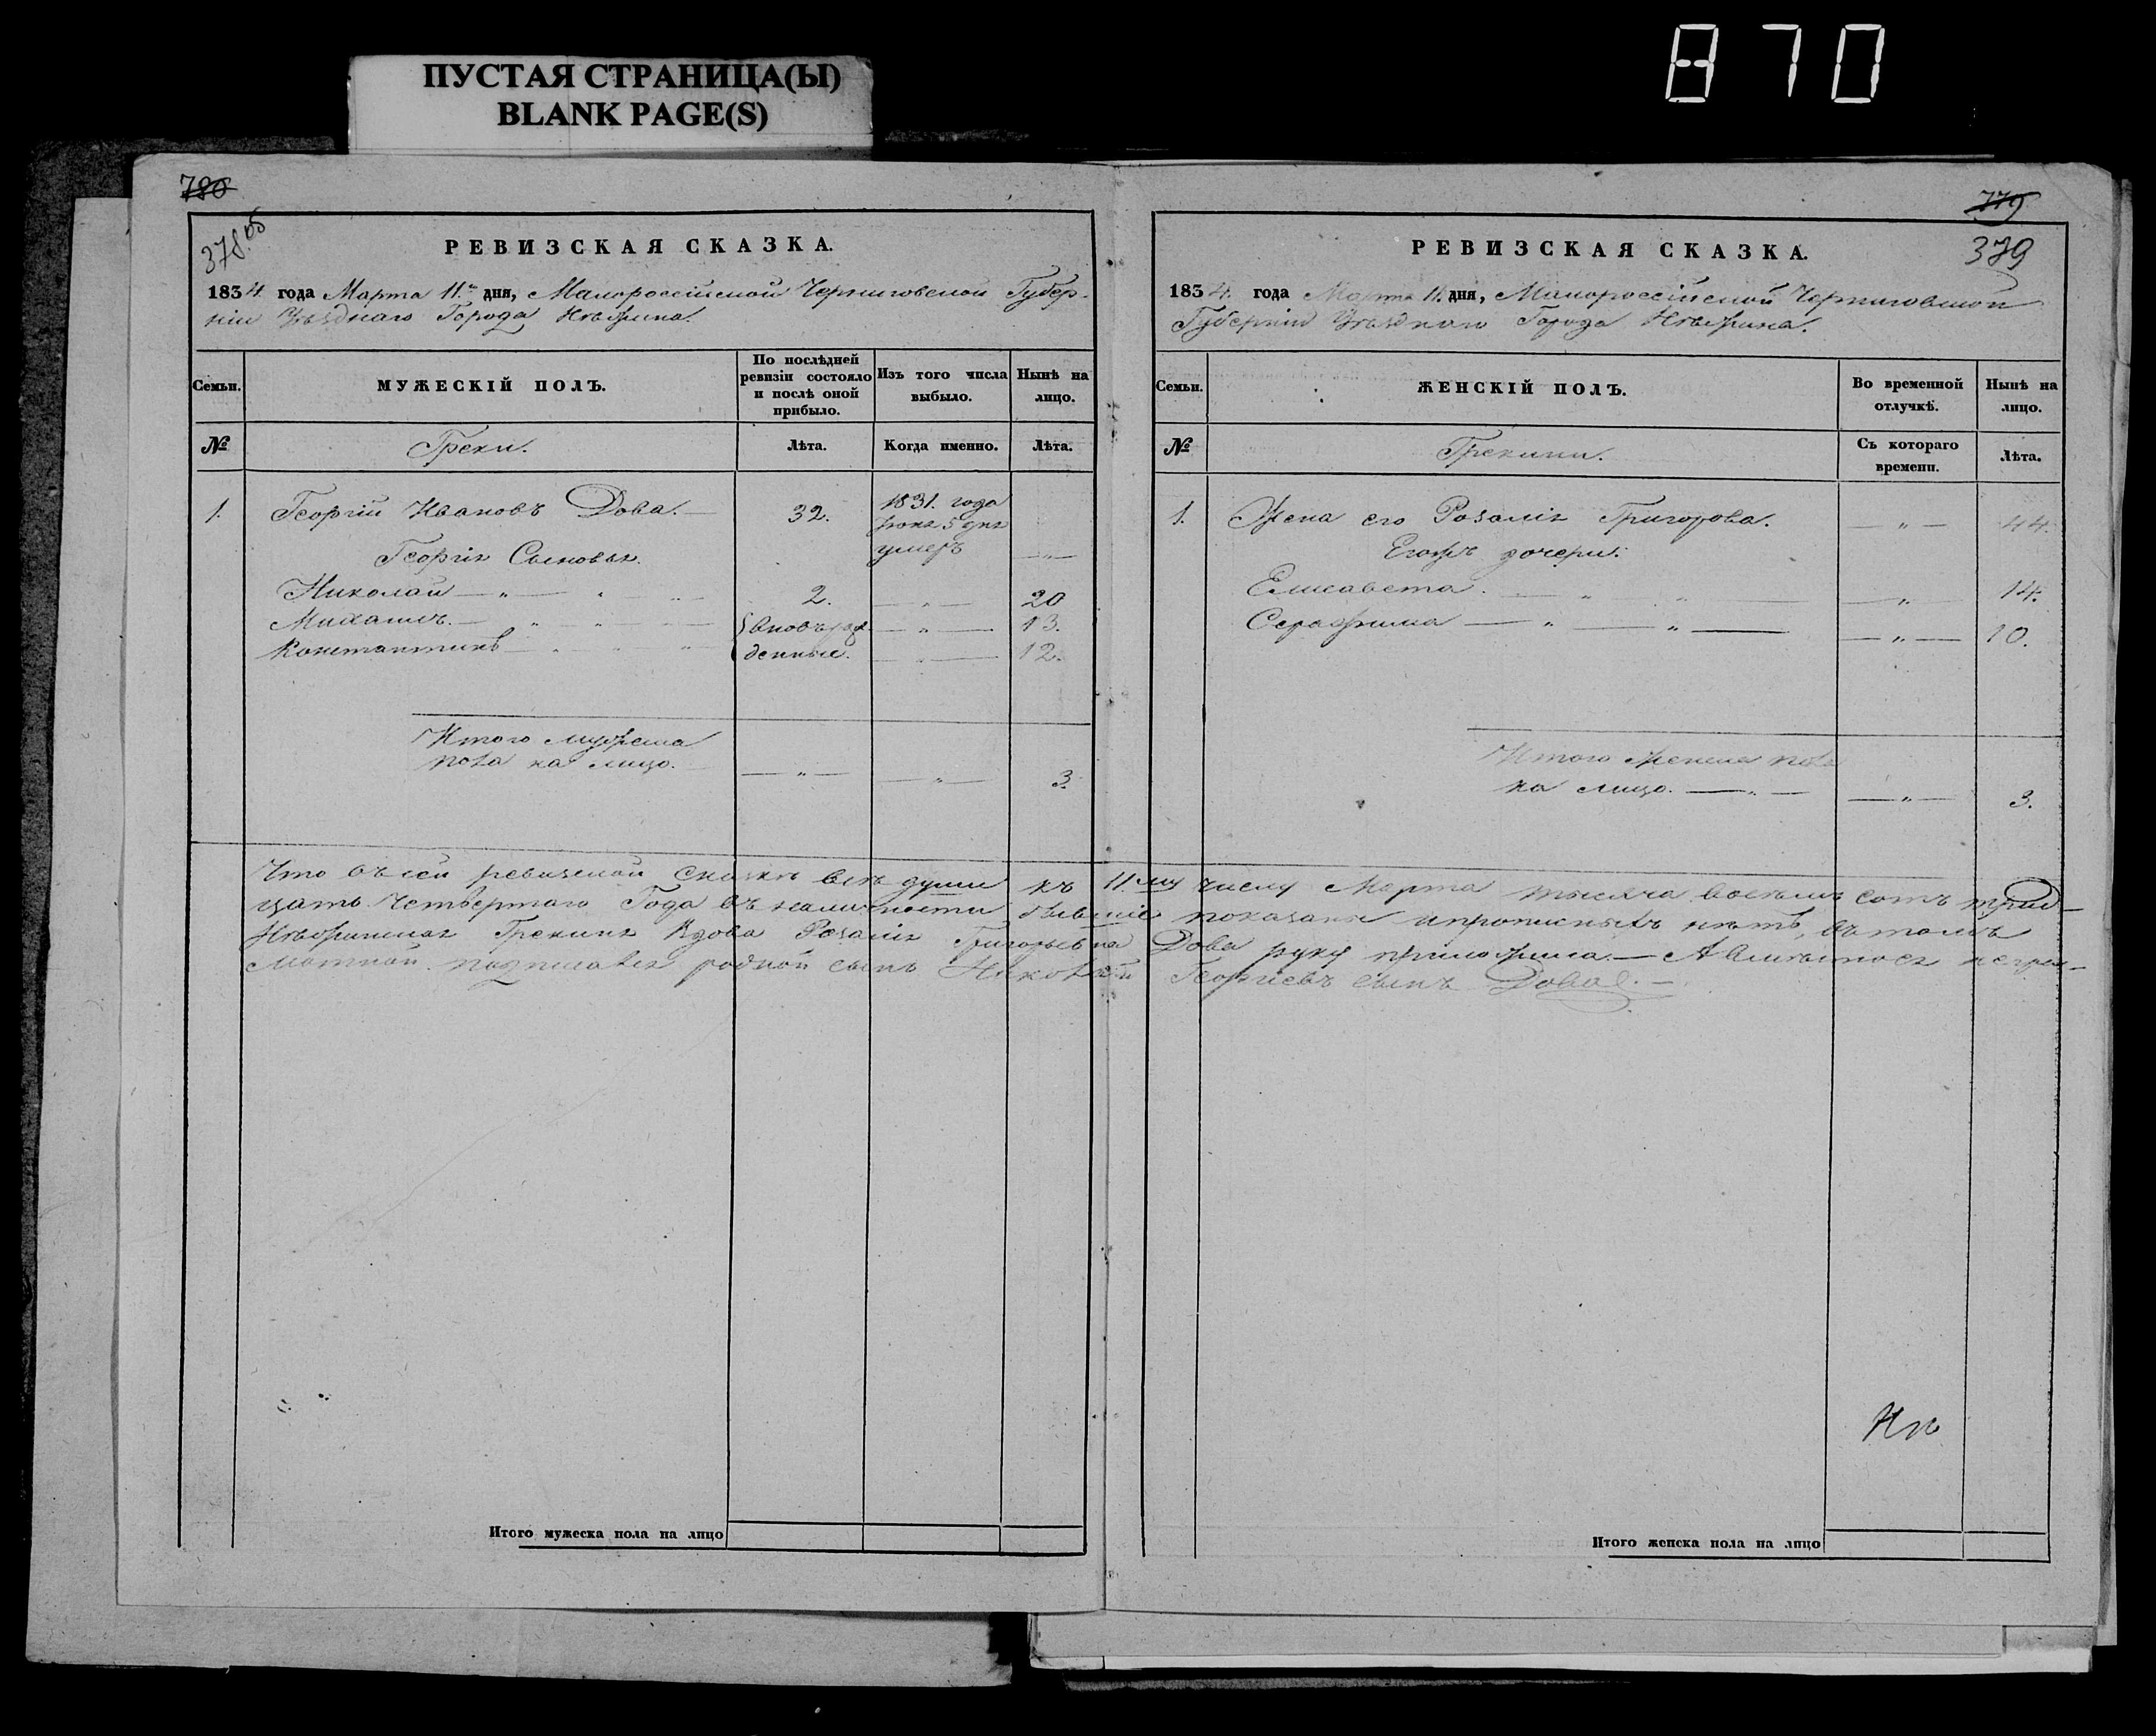 870
ПУСТАЯ СТРАНИЦА(Ы)
BLANK PAGE(S)
780
378 об
РЕВИЗСКАЯ СКАЗКА.
1834 года Марта 11го дня, Малороссійской Черниговской Губер-
ніи Уѣзднаго Города Нѣжина.
Семьи. МУЖЕСКІЙ ПОЛЪ. По послѣдней ревизіи состояло и послѣ оной прибыло. Изъ того числа выбыло. Нынѣ на лицо.
№ Греки. Лѣта. Когда именно. Лѣта.
1. Георгій Ивановъ Дова. — 32. 1831. года
5 дня
умеръ — „ —
Георгія Сыновья.
Николай — „ — „ — 2. — „ — 20
Михаилъ. — „ „ — { вновь рож- — „ — 13.
Константинъ — „ „ денные. — „ — 12.
Итого мужеска
пола на лицо. — „ — — „ — 3.
779
379
РЕВИЗСКАЯ СКАЗКА.
1834. года Марта 11. дня, Малороссійской Черниговской
Губерніи Уѣзднаго Города Нѣжина.
Семьи. ЖЕНСКІЙ ПОЛЪ. Во временной отлучкѣ. Нынѣ на лицо.
№ Грекини. Съ котораго времени. Лѣта.
1. Жена его Розалія Григорова. — „ — 44.
Егожъ дочери:
Елисавета. — „ — „ — — „ — 14.
Серафима — „ — „ — — „ — 10.
Итого женска пола
на лицо. — „ — — „ — 3.
Что въ сей ревизской сказкѣ всѣ души къ 11му числу Марта тысяча восемь сотъ трид-
цать четвертаго Года въ наличности бывшіе показаны и прописныхъ нѣтъ, въ томъ
Нѣжинская Грекиня Вдова Розалія Григорьевна Дова руку приложила. — А вмѣсто ея негра-
мотной подписался родной сынъ Николай Георгіевъ сынъ Дова. —
Итого мужеска пола на лицо
Итого женска пола на лицо